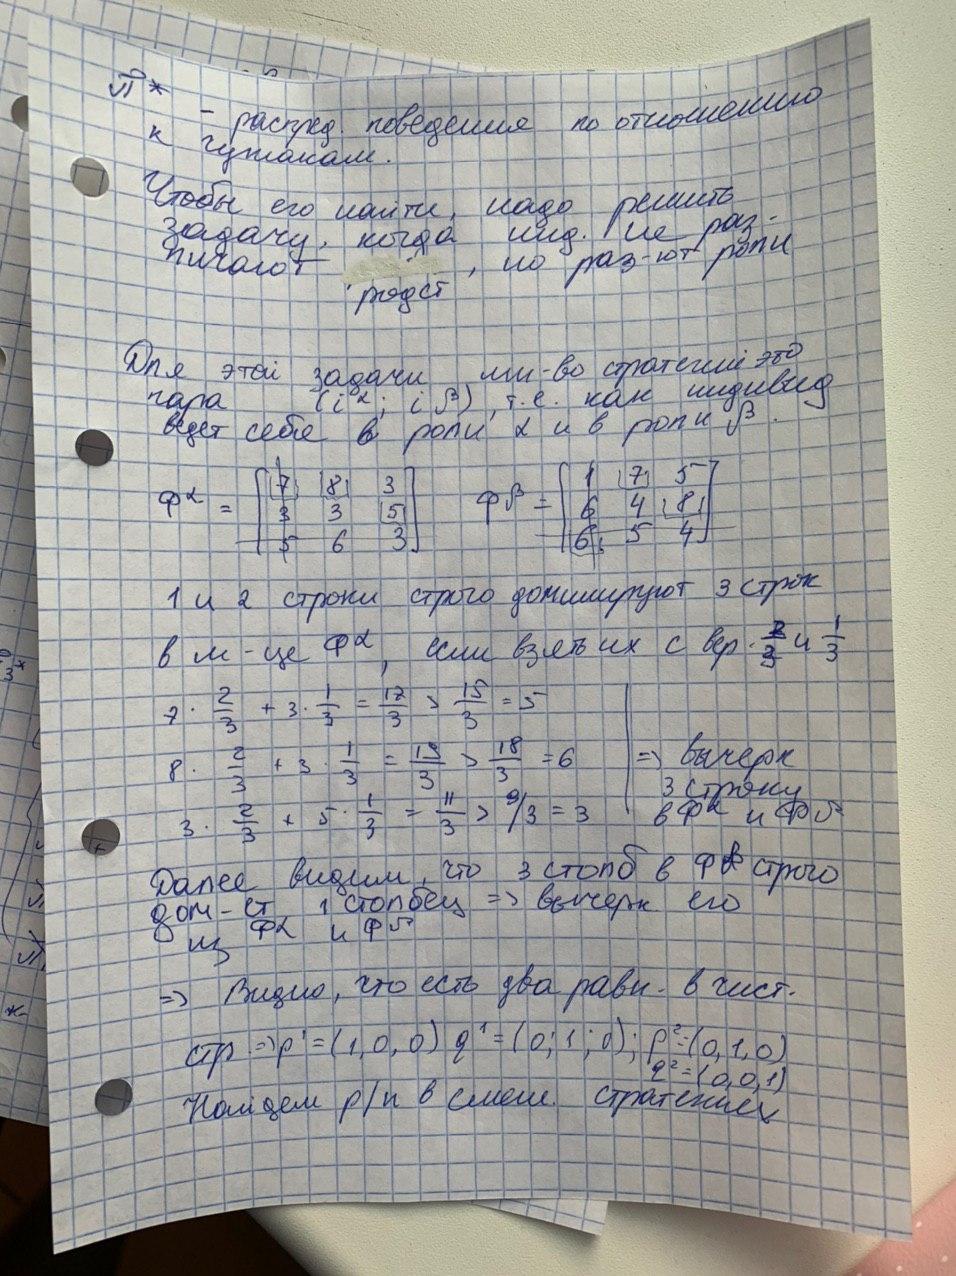 π̂*
– распред. поведения по отношению
к чужакам.
Чтобы его найти, надо решить
задачу, когда инд. не раз-
личают , но раз-ют роли
родст
Для этой задачи мн-во стратегий это
пара (i^α; i^β), т.е. как индивид
ведет себя в роли α и в роли β.
Φ^α = [7 8 3      Φ^β = [1 7 5
3 3 5      6 4 8
5 6 3]      6 5 4]
1 и 2 строки строго доминируют 3 строк
в м-це Φ^α, если взять их с вер. 2/3 и 1/3
7 · 2/3 + 3 · 1/3 = 17/3 > 15/3 = 5
8 · 2/3 + 3 · 1/3 = 19/3 > 18/3 = 6 => вычерк
3 строку
3 · 2/3 + 5 · 1/3 = 11/3 > 9/3 = 3 в Φ^α и Φ^β
Далее видим, что 3 столб в Φ^β строго
дом-ет 1 столбец => вычерк его
из Φ^α и Φ^β
=> Видно, что есть два равн. в чист.
стр. => p¹ = (1,0,0) q¹ = (0;1;0); p² = (0,1,0)
q² = (0,0,1)
Найдем р/п в смеш. стратегиях